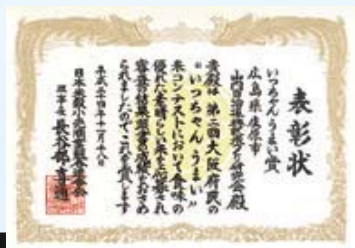 表彰状
いっちゃんうまい賞
広島県庄原市
殿
貴殿は第二回大阪府民の
"いっちゃんうまい"
米コンテストにおいて食味の
優れた素晴らしい米を応募され
審査の結果頭書の成績をおさめ
られましたのでこれを賞します
平成二十四年十一月十八日
日本米穀小売商業組合連合会
理事長 長谷部喜通